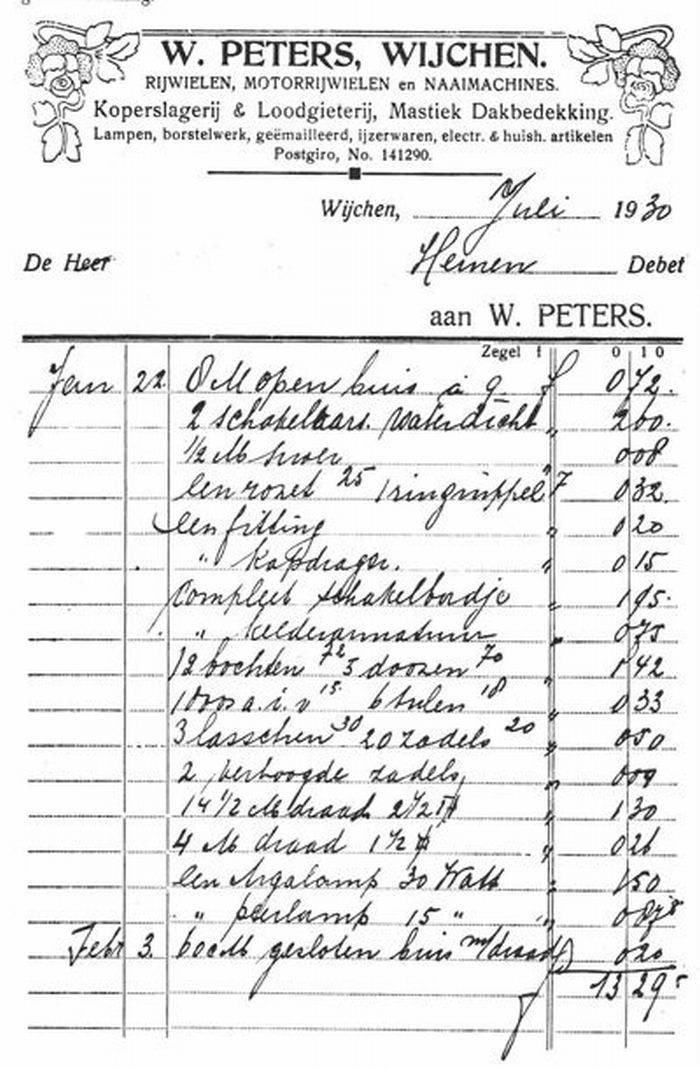 W. PETERS, WIJCHEN.
RIJWIELEN, MOTORRIJWIELEN en NAAIMACHINES.
Koperslagerij & Loodgieterij, Mastiek Dakbedekking.
Lampen, borstelwerk, geëmailleerd, ijzerwaren, electr. & huish. artikelen
Postgiro, No. 141290.
Wijchen, Juli 1930
De Heer Hernen Debet
aan W. PETERS.
Zegel f 0 10
Jan 22. 8 M open buis à 9 f 0 72.
2 schakelaars. waterdicht " 2 00.
1/2 M snoer " 0 08
een roset 25 1 ringnippel 7 0 32.
een fitting " 0 20
" kapdrager. " 0 15
compleet schakelbordje " 1 95.
" kelderarmatuur " 0 75
12 bochten 72 5 doozen 70 " 1 42
1 doos a.i.v 15 6 tulen 18 " 0 33
3 lasschen 30 20 zadels 20 " 0 50
2 verhoogde zadels " 0 09
14 1/2 M draad 2 1/2 " 1 30
4 M draad 1 1/2 " 0 26
een Argalamp 30 Watt " 1 50
" peerlamp 15 " " 0 87 5
Febr 3. gesloten buis m/draad f 0 20
13 29 5